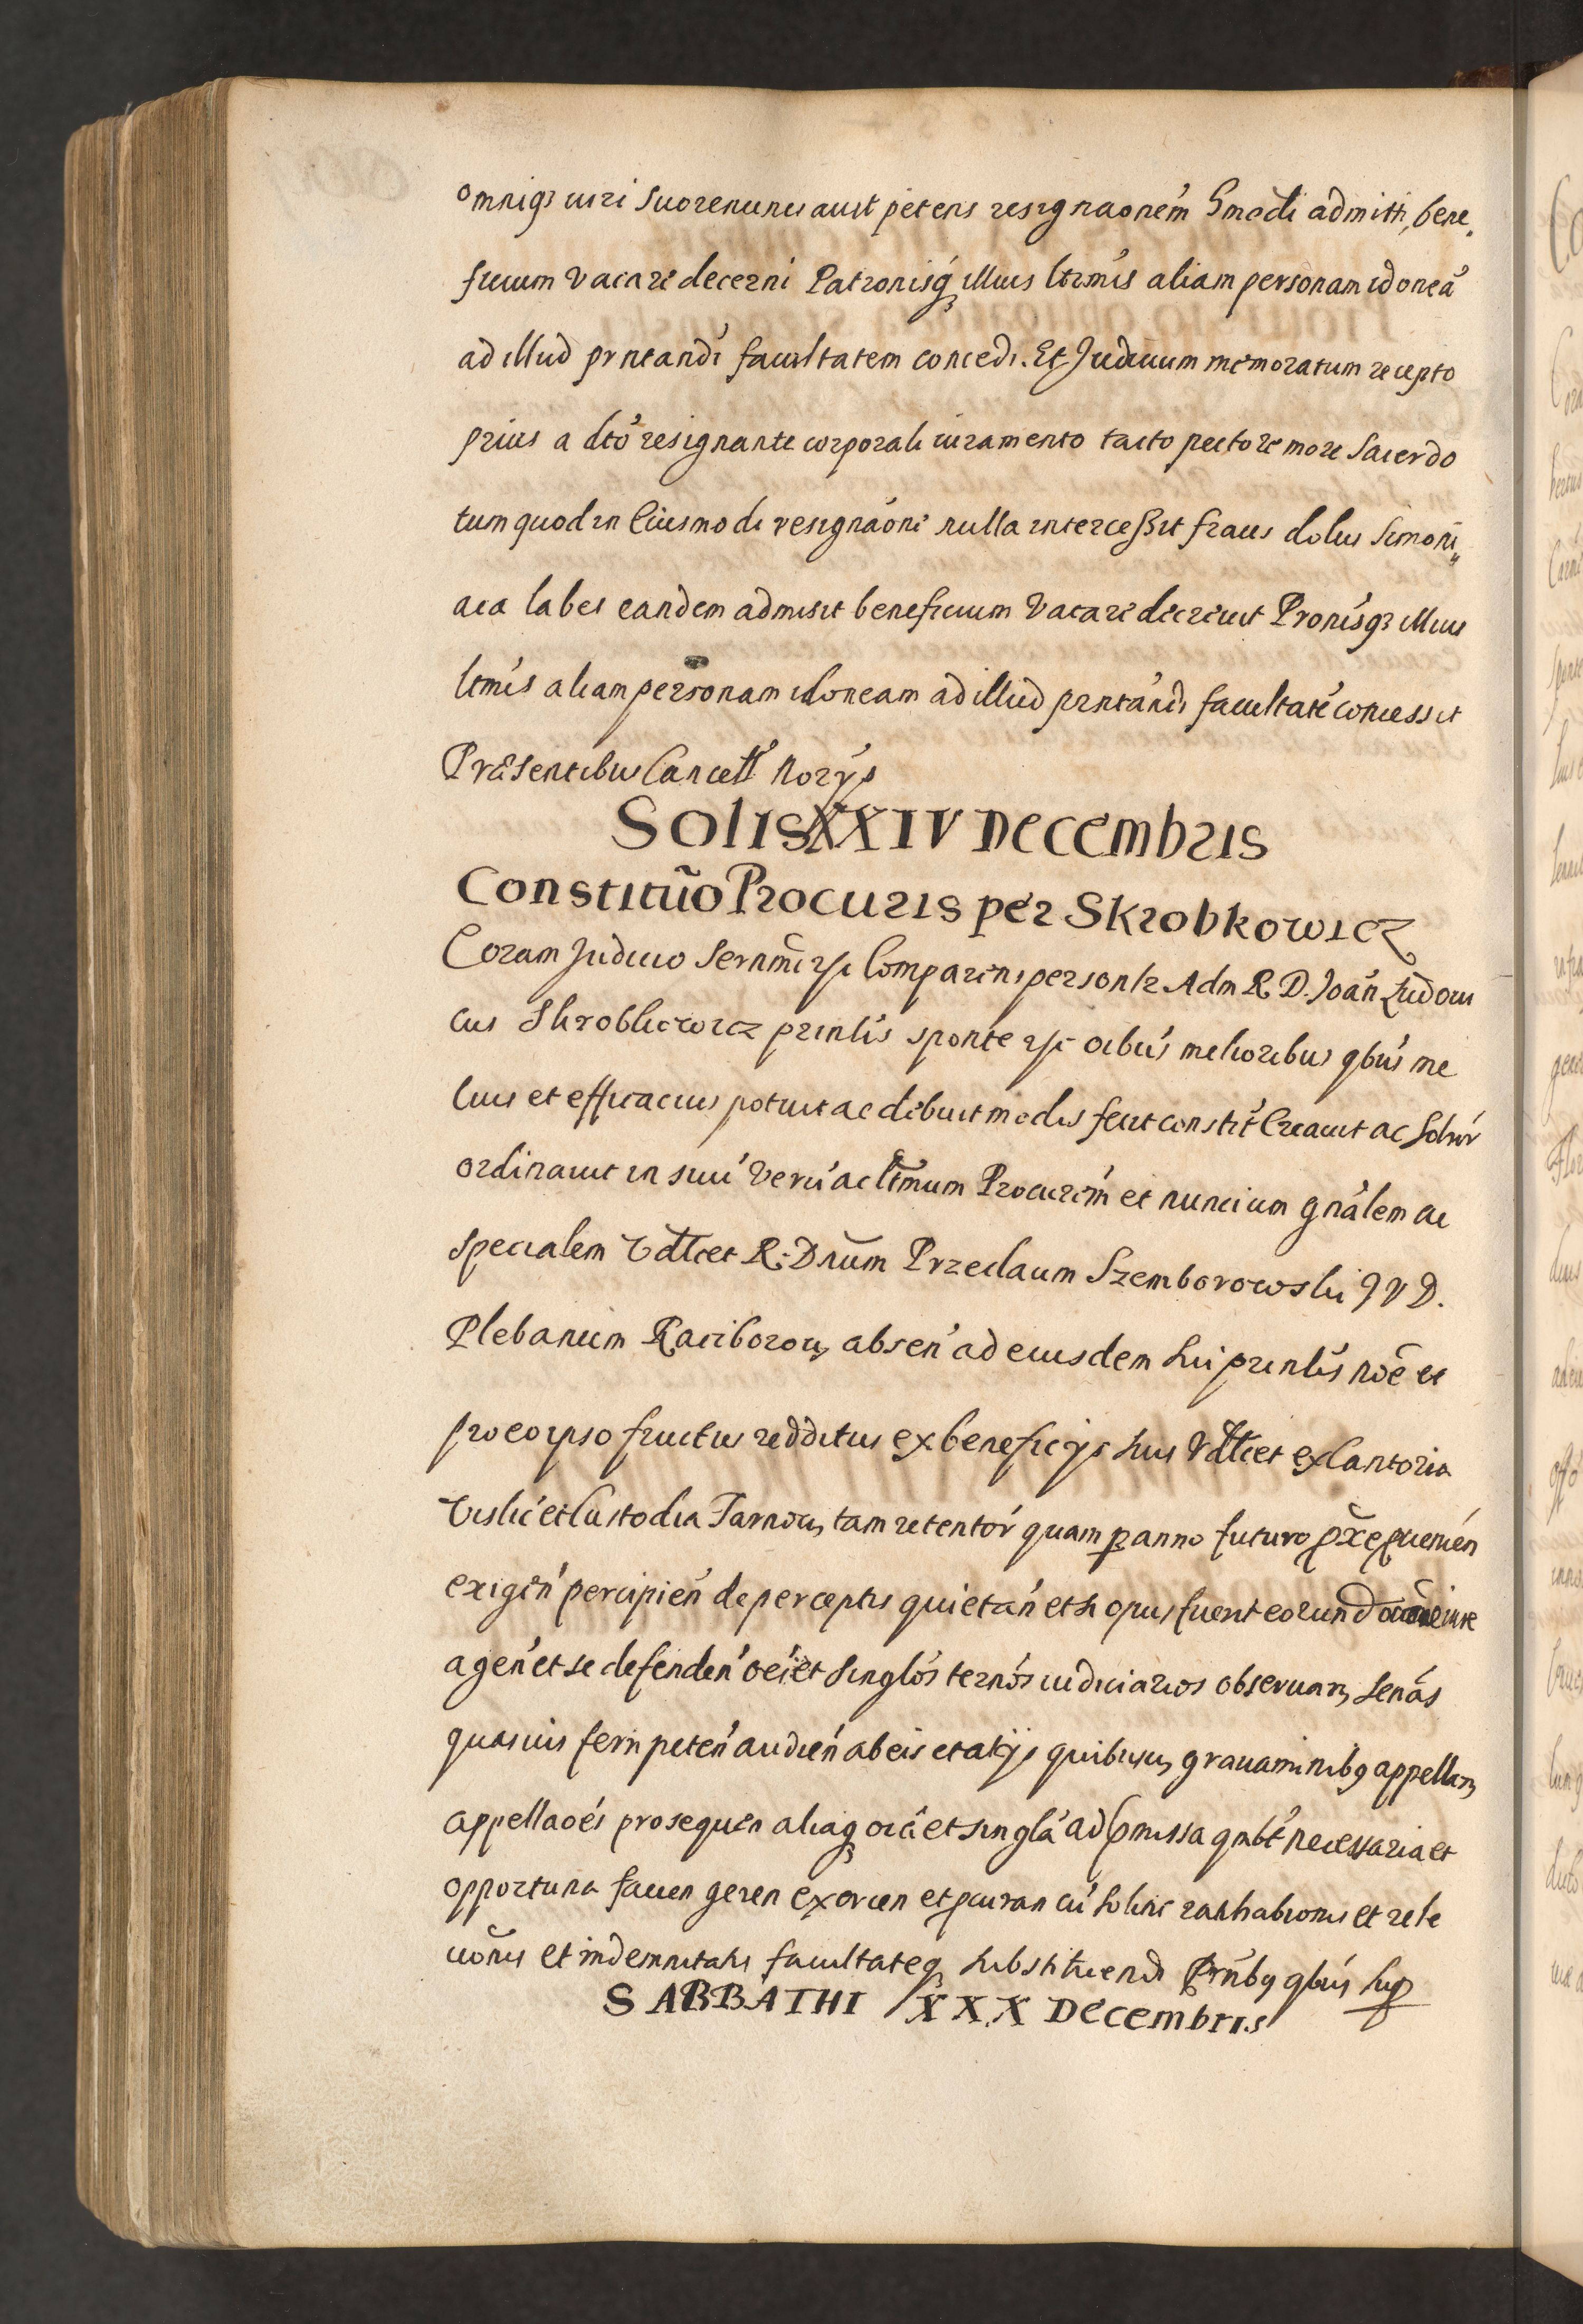 omniq3 iuri suo renunciauit petens resignaonem hmodi admitti, bene„
ficium vacare decerni Patronisq3 illius ltimis aliam personam idoneã
ad illud prntandi facultatem concedi. Et Judicium memoratum recepto
prius a dto resignante corporali iuramento tacto pectore more Sacerdo
tum quod in Eiusmodi resignaoni nulla intercessit fraus dolus Simoni„
aca labes eandem admisit beneficium Vacare decreuit Pronisq3 illius
ltimis aliam personam idoneam ad illud prntandi facultatẽ concessit
Præsentibus Cancell Norys
Solis XXIV Decembris
Constituo Procuris per Skrobkowicz
Coram Judicio Sernmi Comparens personlr Adm R. D. Joan Ludoui
cus Skrobkowicz prinlis sponte oibus melioribus qbus me
lius et efficacius potuit ac debuit modis fecit constit Creauit ac Solnr
ordinauit in suu veru ac ltimum Procurem et nuncium gnalem ac
specialem vdlicet R. Dnum Przeclaum Szemborowski J V D.
Plebanum Raciborou, absen ad eiusdem sui prinlis noe et
pro eo ipso fructus redditus ex beneficijs suis vdlicet ex Cantoria
Vislic et Custodia Tarnou, tam retentor quam p anno futuro
exigen percipien de perceptis quietan et si opus fuerit eorund iure
agen et se defenden oes et singlos ternos iudiciarios obseruan, senas
quasuis ferri peten audien ab eis et alijs quibusu, grauaminibq appellan,
appellaoes prosequen aliaq3 oia et singla ad pmissa qmlt necessaria et
opportuna facien geren exercen et pcuran cu solitis ratihabionis et rele
uonis et indemnitatis facultateq3 substituendi Prntibq qbus sup
SABBATHI XXX Decembris